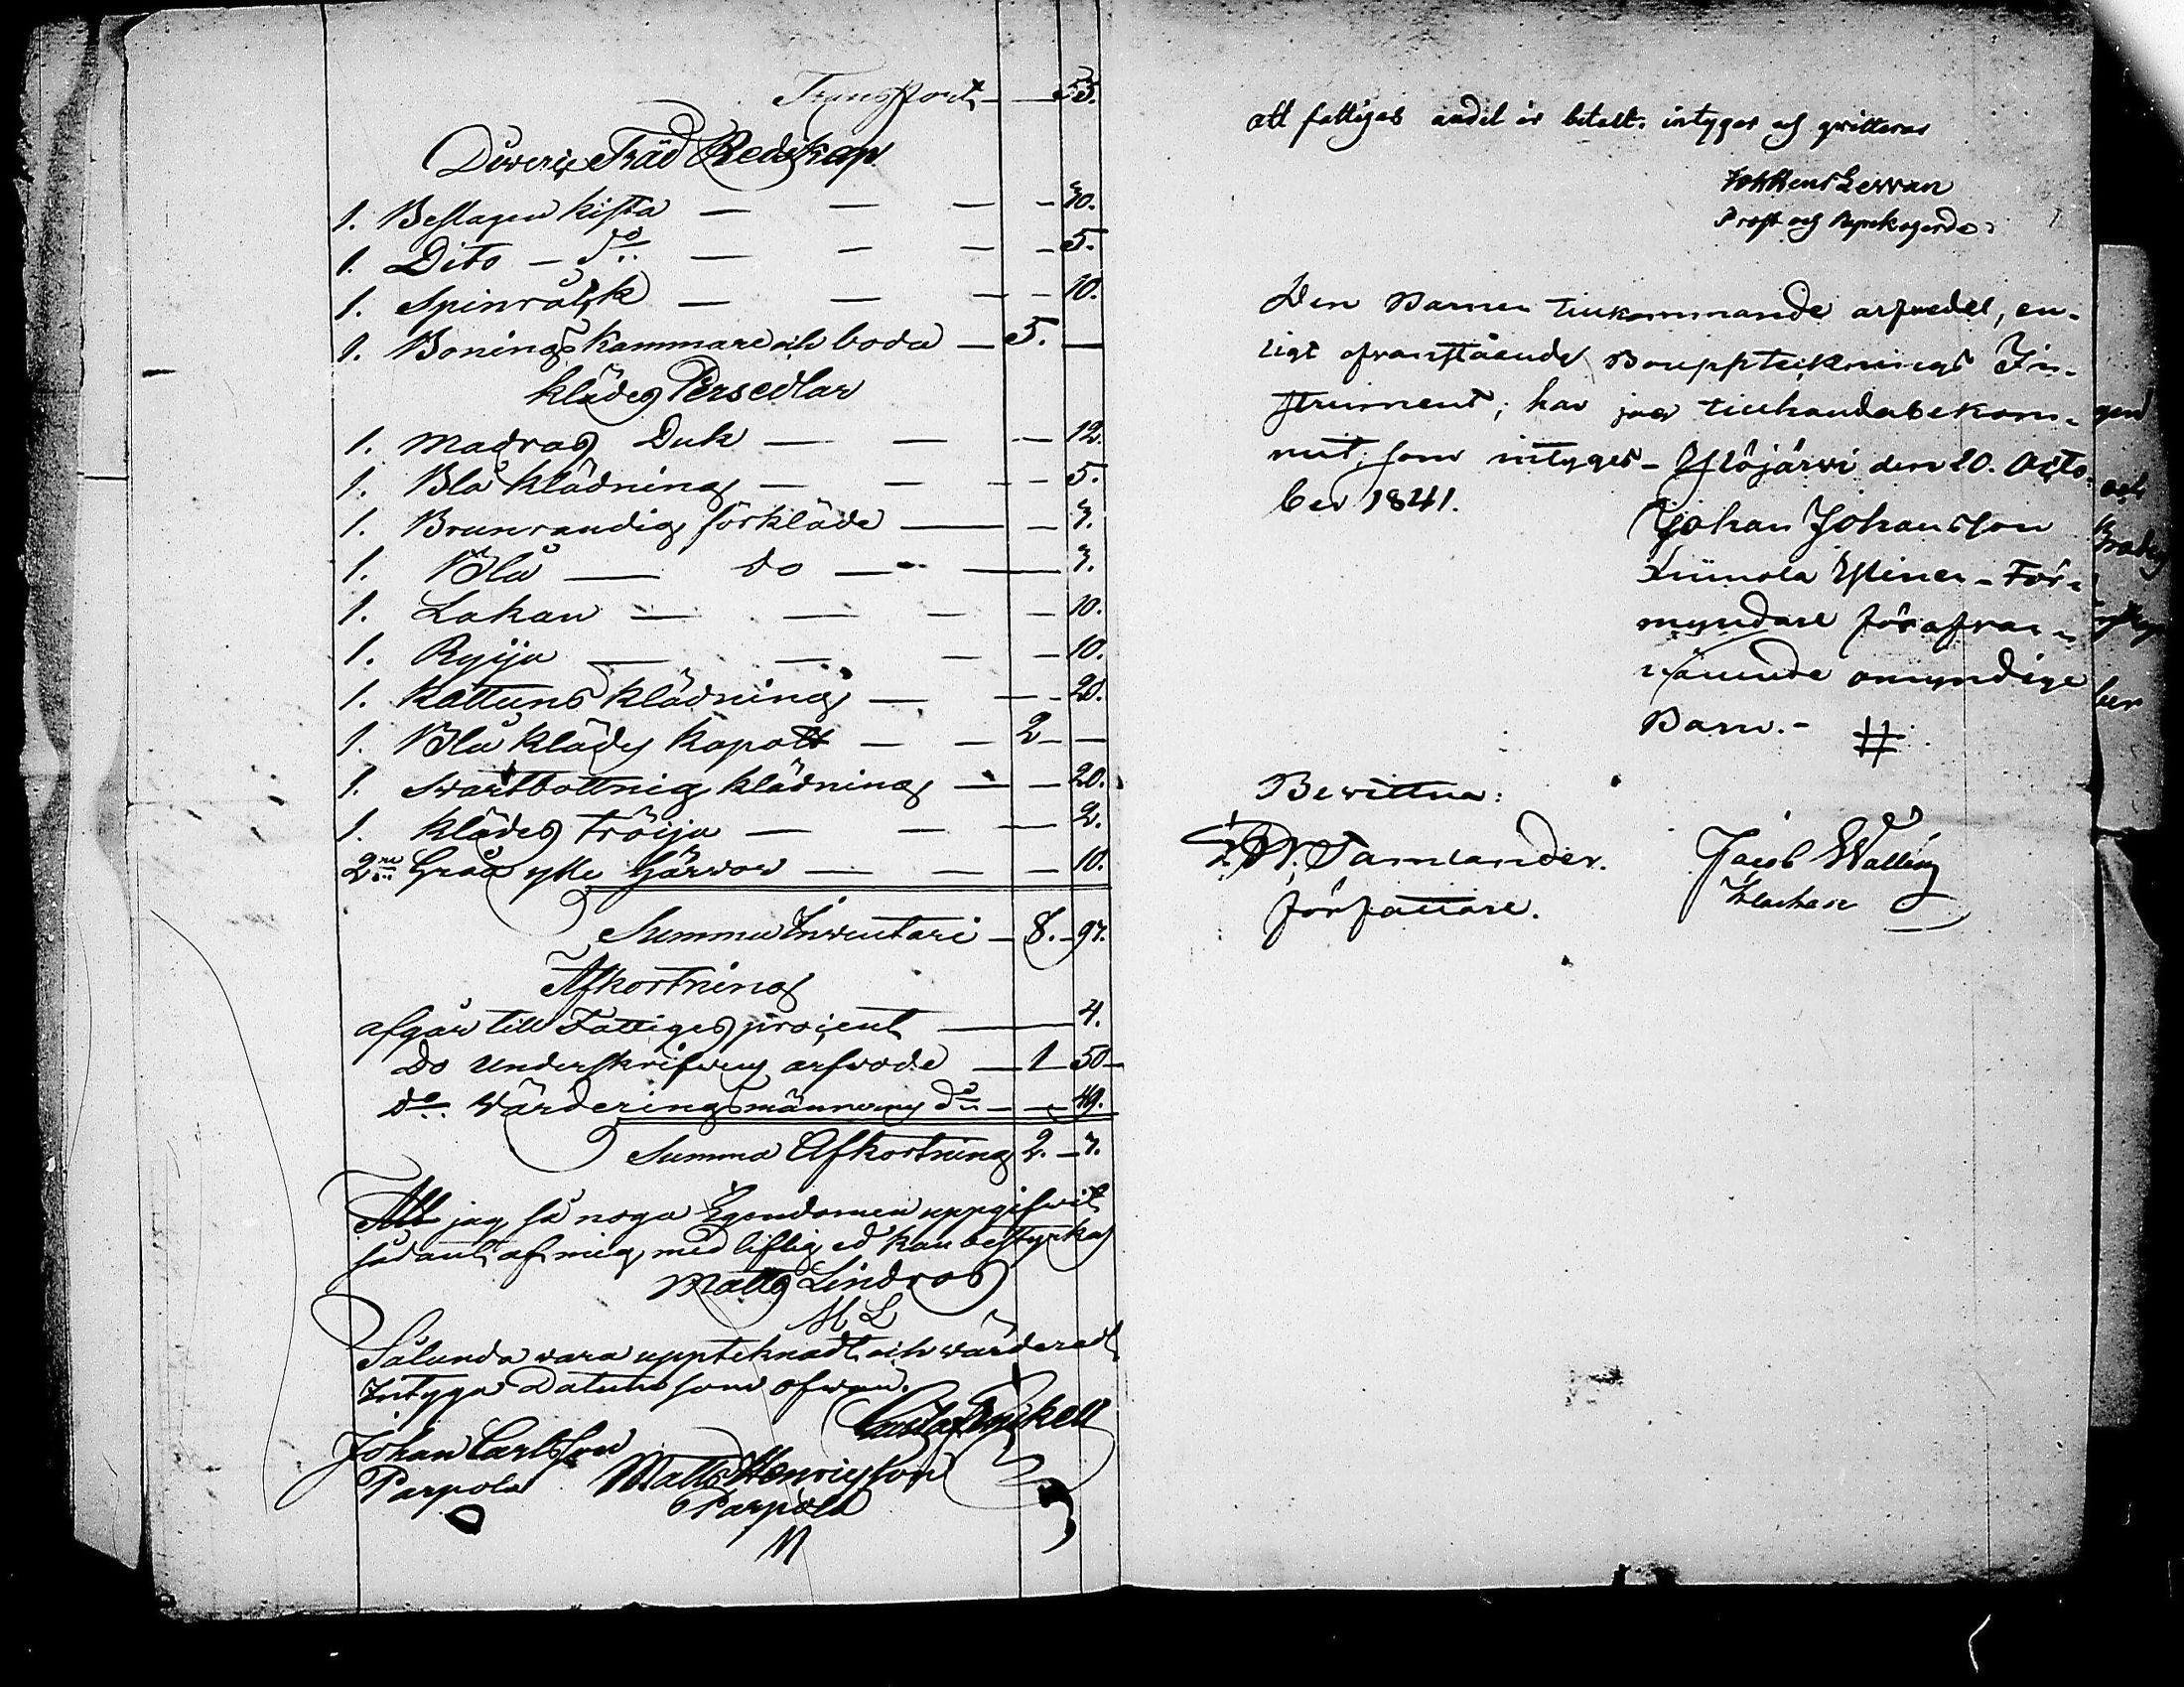 Transport — — 53.
Diverse Träd Redskap
1. Beslagen kista — — — — 30.
1. Dito — do — — — — 5.
1. Spinråck — — — — 10.
1. Bonings kammare och boda — 5. —
klädes Persedlar
1. Madras Duk — — — 12.
1. Blå klädning — — — — 5.
1. Brunrandig förkläde — — 3.
1. Blå — do — — 3.
1. Lakan — — — — 10.
1. Ryija — — — — 10.
1. Kattuns klädning — — — 20.
1. Blå klädes kapott — — 2 — —
1. Svartbottnig klädning — — 20.
1. klädes Tröija — — — 2.
2ne Grå ylle — — — 10.
Summa Inventari — 8. — 97.
Afkortning
afgår till Fattiges procent — 4.
do underskrifwens arfwode — 1 — 50 —
do Värderingsmännerns do — — 49.
Summa Afkortning 2. — 3.
Att jag så noga Egendomen uppgifwit
sådant af mig med liflig ed kan bestyrkas
Matts Lindros
M L
Sålunda vara upptecknadt och värderadt
Intyga Datum som ofwan.
Johan Carlsson
Parpola
Matts Henricsson
Parpola
M
att fattiges andel är betalt. intygas och qvitteras
Prost och Kyrkoherde.
Den Barnen tillkommande arfvedel, en-
ligt ofvanstående Bouppteknings In-
strument; har jag tillhandabekom-
mit, som intygas — Ylöjärvi den 20. Octo-
ber 1841.
Johan Johansson
För-
myndare för ofvan-
nämnde omyndige
Barn. —
Bevittna:
Tamlander.
författare.
Jacob Walling
Klockare
gen
och
ber